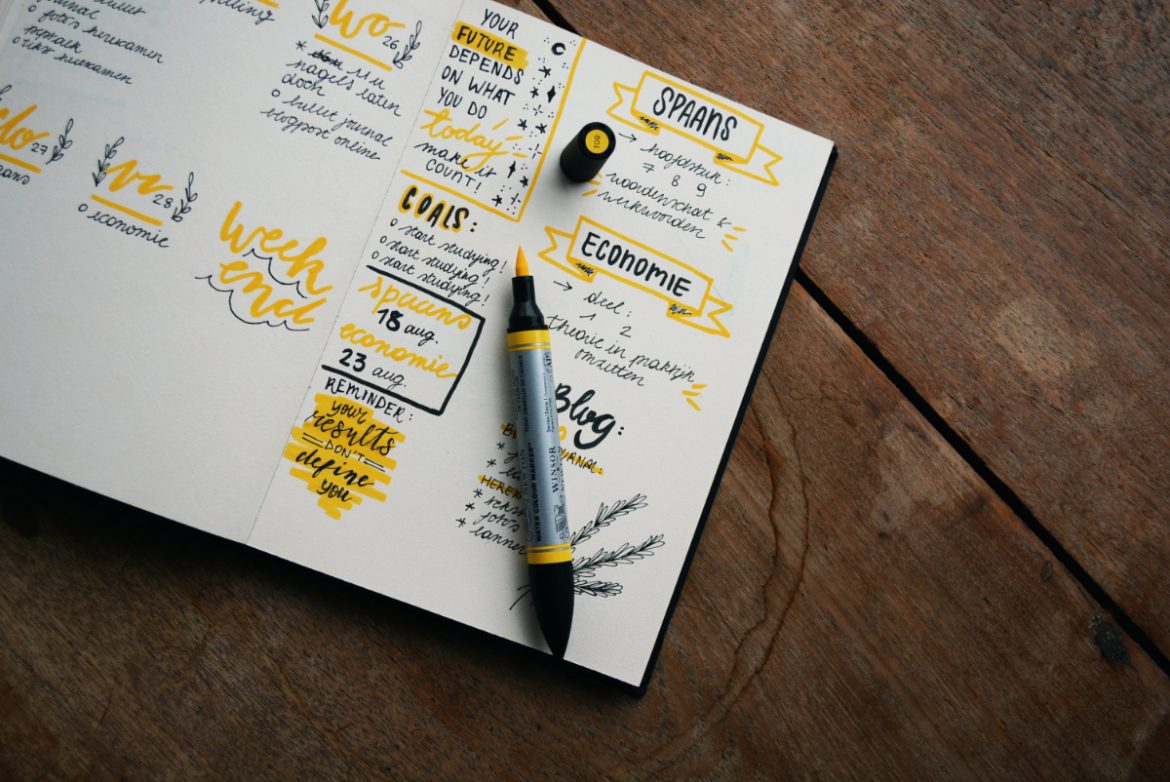 o foto's herexamen
o tekst herexamen
wo 26
* nagels laten
doen
o bullet journal
blogpost online
do 27
vr 28
o economie
week
end
YOUR
FUTURE
DEPENDS
ON WHAT
YOU DO
today
make it
COUNT!
GOALS:
o start studying!
o start studying!
o start studying!
spaans
18 aug.
economie
23 aug.
REMINDER:
your
results
DON'T
define
you
SPAANS
→ hoofdstuk:
7 8 9
woordenschat &
werkwoorden
ECONOMIE
→ deel:
1 2
theorie in praktijk
omzetten
Blog:
JOURNAL:
HEREX
* tekst
* foto's
* banner
109
WATER COLOUR MARKER™
WINSOR